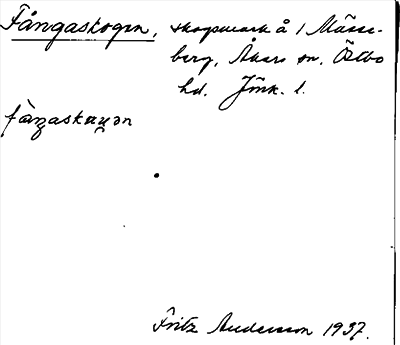 Fångaskogen, skogsmark å 1 Mässe-
berg, Åkers sn. Östbo
hd. Jönk. l.
fàŋaskɷɷən
Fritz Andersson 1937.